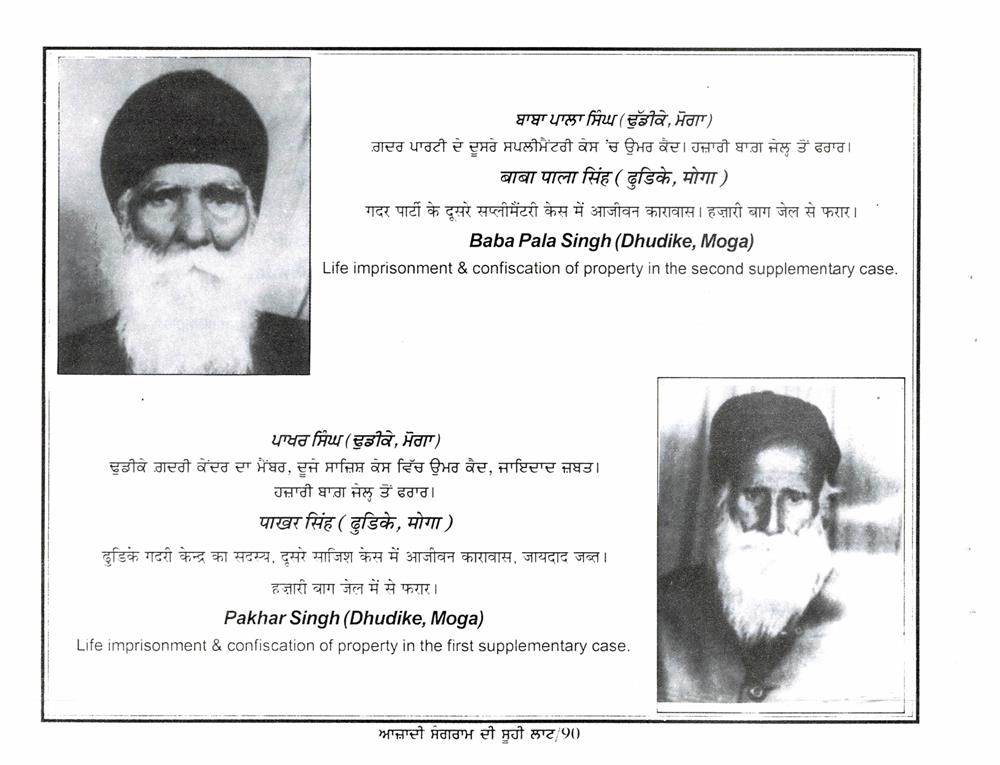 ਬਾਬਾ ਪਾਲਾ ਸਿੰਘ (ਢੁੱਡੀਕੇ, ਮੋਗਾ)
ਗ਼ਦਰ ਪਾਰਟੀ ਦੇ ਦੂਸਰੇ ਸਪਲੀਮੈਂਟਰੀ ਕੇਸ 'ਚ ਉਮਰ ਕੈਦ। ਹਜ਼ਾਰੀ ਬਾਗ਼ ਜੇਲ੍ਹ ਤੋਂ ਫਰਾਰ।
बाबा पाला सिंह ( ढुडिके, मोगा )
गदर पार्टी के दूसरे सप्लीमैंटरी केस में आजीवन कारावास। हज़ारी बाग जेल से फरार।
Baba Pala Singh (Dhudike, Moga)
Life imprisonment & confiscation of property in the second supplementary case.
ਪਾਖਰ ਸਿੰਘ (ਢੁਡੀਕੇ, ਮੋਗਾ)
ਢੁਡੀਕੇ ਗ਼ਦਰੀ ਕੇਂਦਰ ਦਾ ਮੈਂਬਰ, ਦੂਜੇ ਸਾਜ਼ਿਸ਼ ਕੇਸ ਵਿੱਚ ਉਮਰ ਕੈਦ, ਜਾਇਦਾਦ ਜ਼ਬਤ।
ਹਜ਼ਾਰੀ ਬਾਗ਼ ਜੇਲ੍ਹ ਤੋਂ ਫਰਾਰ।
पाखर सिंह ( ढुडिके, मोगा )
ढुडिके गदरी केन्द्र का सदस्य, दूसरे साजिश केस में आजीवन कारावास, जायदाद जब्त।
हज़ारी बाग जेल में से फरार।
Pakhar Singh (Dhudike, Moga)
Life imprisonment & confiscation of property in the first supplementary case.
ਆਜ਼ਾਦੀ ਸੰਗਰਾਮ ਦੀ ਸੂਹੀ ਲਾਟ/90